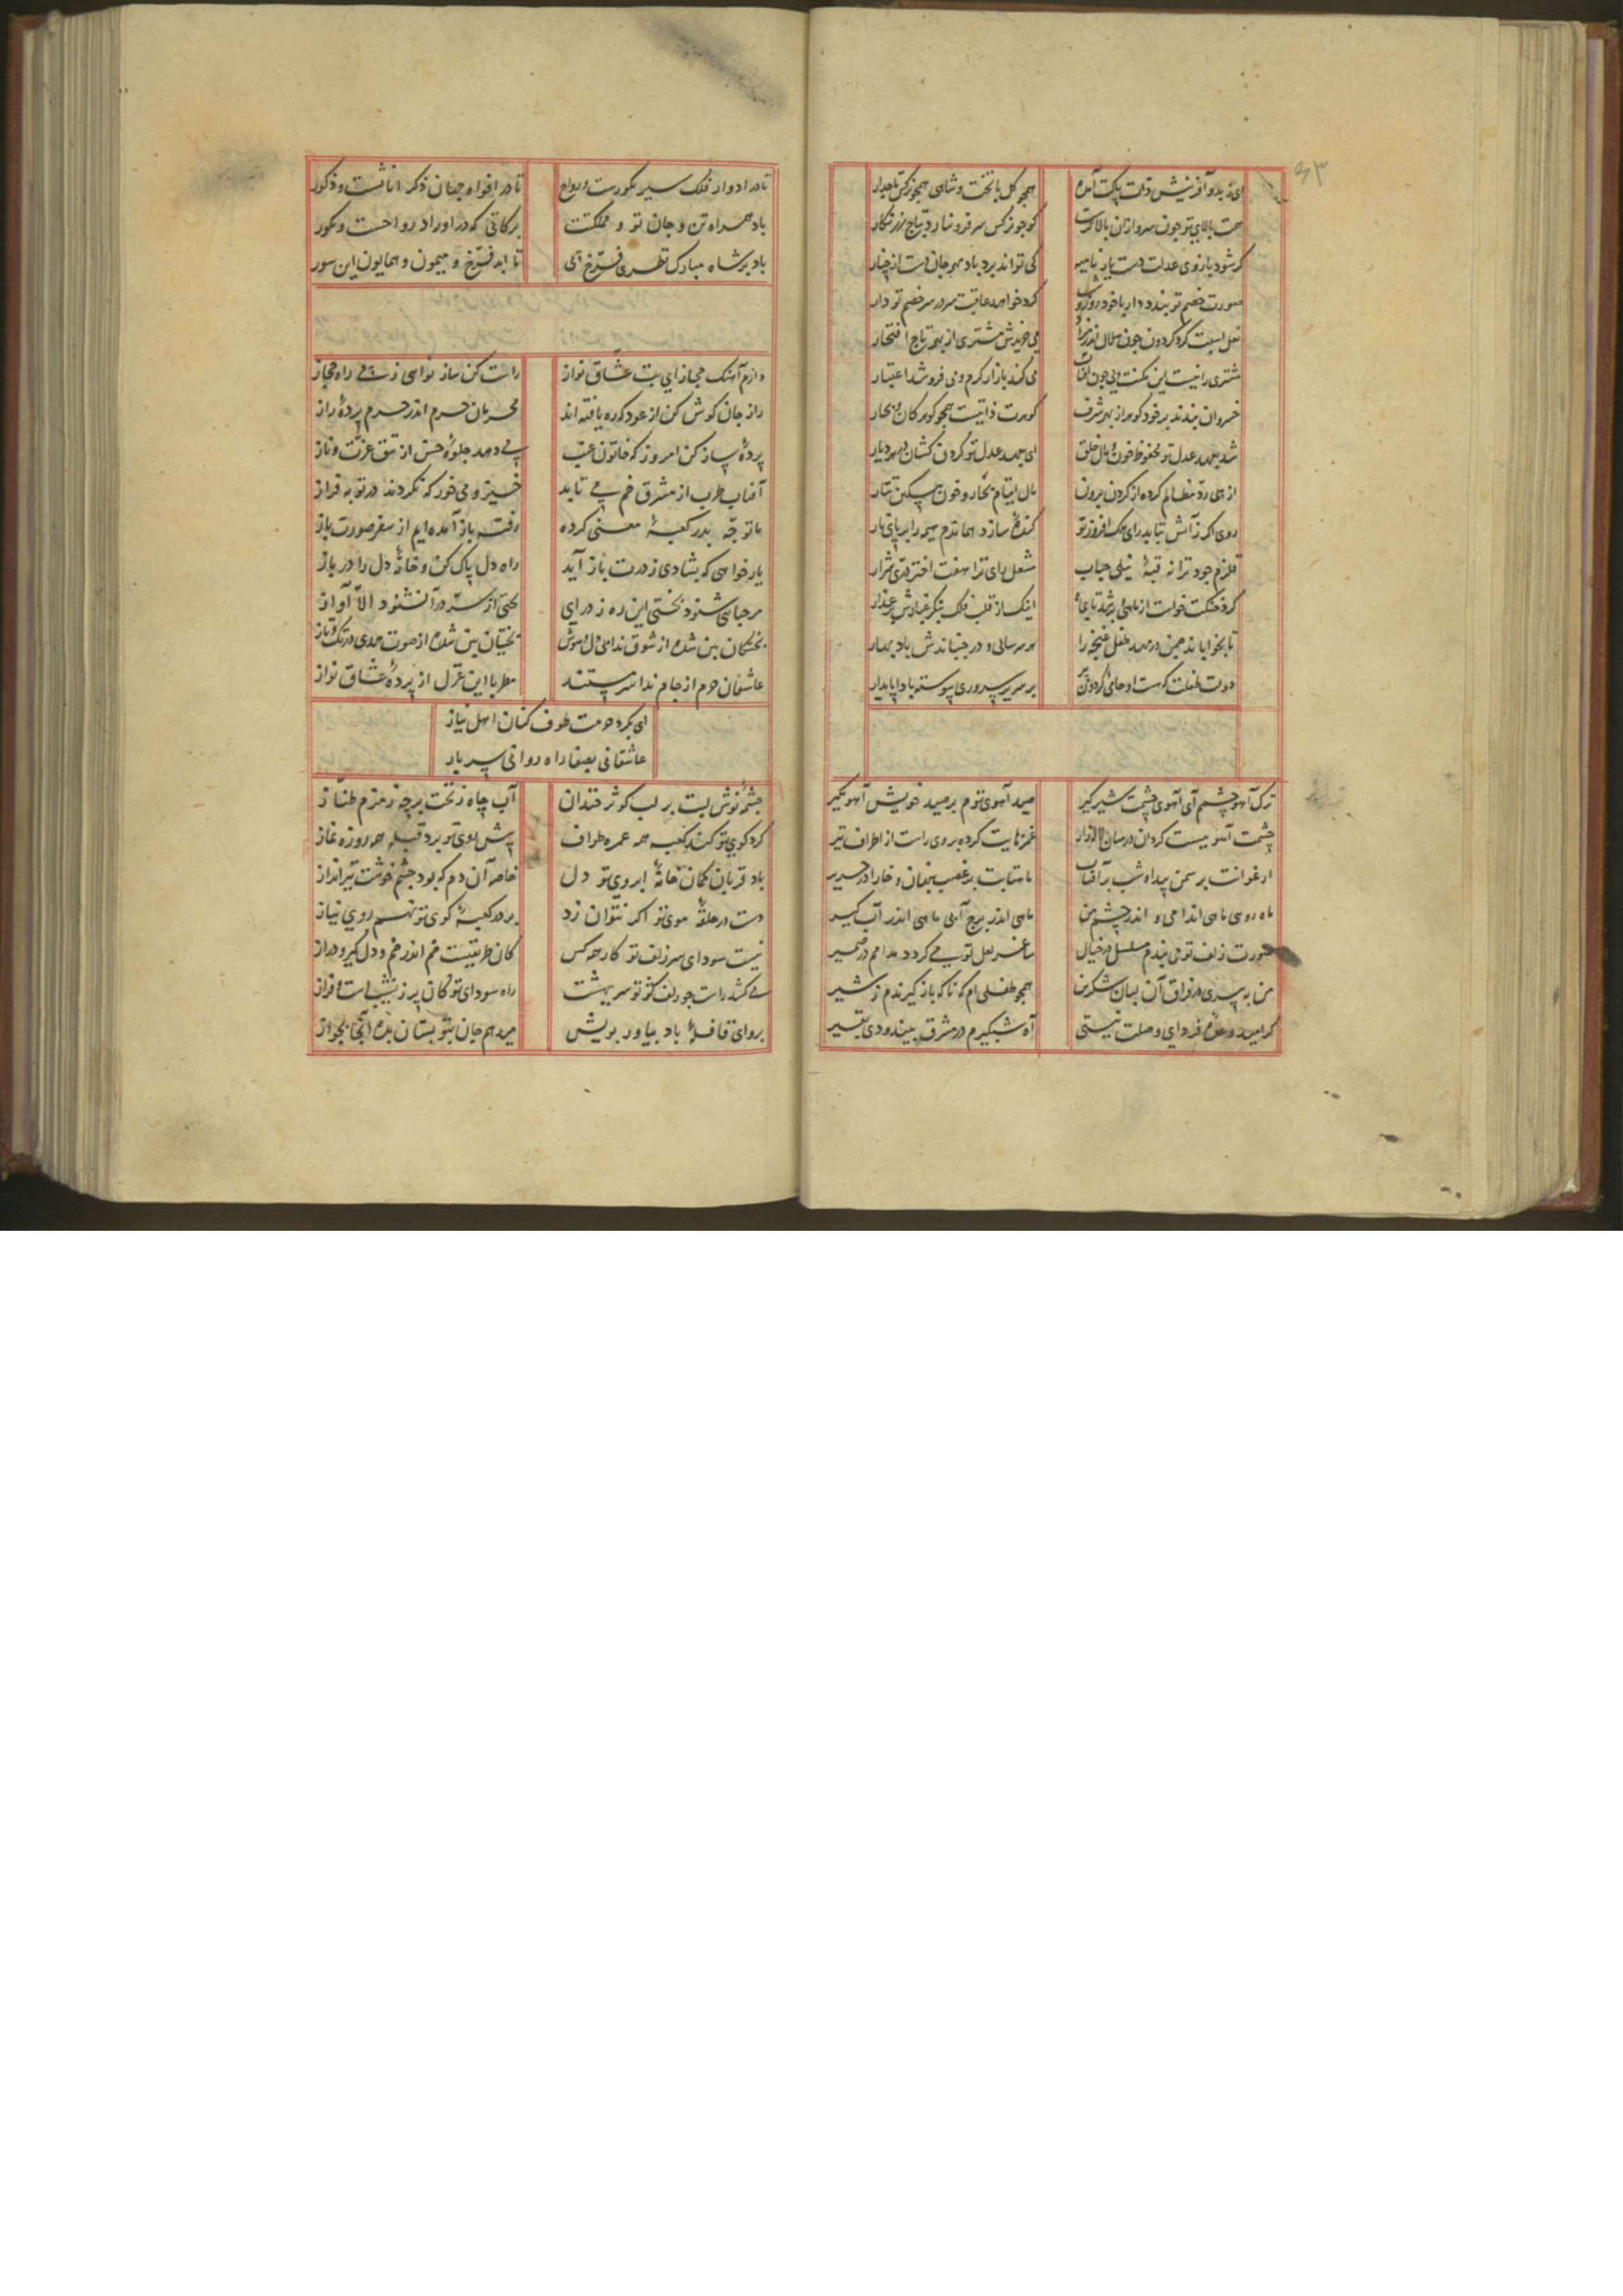 ۶۳
ای بدو آفرینش دولت پاکت آمده همچو گل با تخت و شاهی همچو نرگس تاجدار
هست بالای تو چون سرو ازان بالاترست کو چو نرگس سر فرو نارد بتاج زرنگار
گر شود بازوی عدلت دست یار نامیه کی تواند برد باد مهرجان دست از چنار
صورت خصم تو بندد دار با خود کرد خواهد عاقبت سر در سر خصم تو دار
نعل اسبت گرد گردون چون هلال اندر می خریدش مشتری از بهر تاج افتخار
مشتری را نیست این مکنت ولی چون آفتاب می کند بازار گرم و می فروشد اعتبار
خسروان بندند بر خود گوهر از بهر شرف گوهرت ذاتیست همچو گوهر کان و بحار
شد بعهد عدل تو محفوظ خون و مال خلق ای بعهد عدل تو گردن کشان هر دیار
از پی رد مظالم کرده از گردن برون مال ایتام بخار و خون مسکین تتار
روی اگر ز آتش بتابد رای ملک افروز تو کنده سازد هماندم همه را بر پای نار
قلزم جود ترا نه قبهٔ نیلی حباب مشعل رای ترا هفت اختر دری شرار
گرد جنگت خواست از ماهی و بر شد تا بماه اینک از قلب فلک بنگر غبارش بر عذار
تا بخواباند چمن در مهد طفل غنچه را هر سالی و در جنباندش باد بهار
دولت طفلت که هست او حامی گردون پیر بر سریر سروری پیوسته بادا پایدار
ترک آهو چشم آی آهوی چشمت شیر گیر صید آهوی توم بر صید خویش آهو مگیر
چشمت آهوییست گردان در میان لاله‌زار غمزهایت کرده بر وی راست از اطراف تیر
ارغوانت بر سمن پیدا و شب بر آفتاب ماهتابت بر قصب پنهان و خارا در حریر
ماه روی ماهی اندامی و اندر چشم من ماهی اندر برج آبی ماهی اندر آب گیر
صورت زلف تو می بندم مسلسل در خیال ساغر لعل تو می گردد مدامم در ضمیر
من به پیری در فراق آن لبان شکرین همچو طفلی ام که ناگه باز گیرندم ز شیر
گر امید وعدهٔ فردای وصلت نیستی آه شبگیرم در مشرق ببندودی بقیر
تا در ادوار فلک سیر کورست و تا در افواه جهان ذکر اناثست و ذکور
باد همراه تن و جان تو و مملکتت برکاتی که در اوراد رواحست و بکور
باد بر شاه مبارک نظری فرخ پی تا ابد فرخ و میمون و همایون این سور
دارم آهنگ حجاز ای بت عشاق نواز راست کن ساز نوایی ز پی راه حجاز
راز جان گوش کن از عود که ره یافته اند محرمان حرم اندر حرم پردهٔ راز
پردهٔ ساز کن امروز که خاتون عنب می دهد جلوهٔ حسن از تتق عزت و ناز
آفتاب طرب از مشرق خم می تابد خیز و می خور که نکردند در توبه فراز
ما توجه بدر کعبهٔ معنی کرده رفته باز آمده ایم از سفر صورت باز
یار خواهی که بشادی ز درت باز آید راه دل پاک کن و خانهٔ دل را در باز
مرحبا می شنود بختی این ره ز درای بختی از سر در آ نشنود الا آواز
خفتگان بین شده از شوق ندا بی دل و هوش بختیان بین شده از صوت حدی در تک و تاز
عاشقان حرم از جام ندا سرمستند مطربا این غزل از پردهٔ عشاق نواز
ای بگرد حرمت طوف کنان اهل نیاز
عاشقانی بصفا راه روانی سرباز
چشمهٔ نوش لبت بر لب کوثر خندان آب چاه زنخت بر چه زمزم طناز
گرد کوی تو کند کعبه همه عمره طواف پیش روی تو برد قبله همه روزه نماز
باد قربان کمان خانهٔ ابروی تو دل خاصه آن دم که بود چشم خوشت تیرانداز
دست در حلقهٔ موی تو اگر نتوان زد بر در کعبهٔ کوی تو نهم روی نیاز
نیست سودای سر زلف تو کار همه کس کان طریقیست خم اندر خم و دل گیر و دراز
می کشد راست چو زلف کژ تو سر بهشت راه سودای تو کان پر ز نشیب است و فراز
برو ای قافلهٔ باد بیاور بویش میدهم جان بتو بستان بده آنجا بجواز